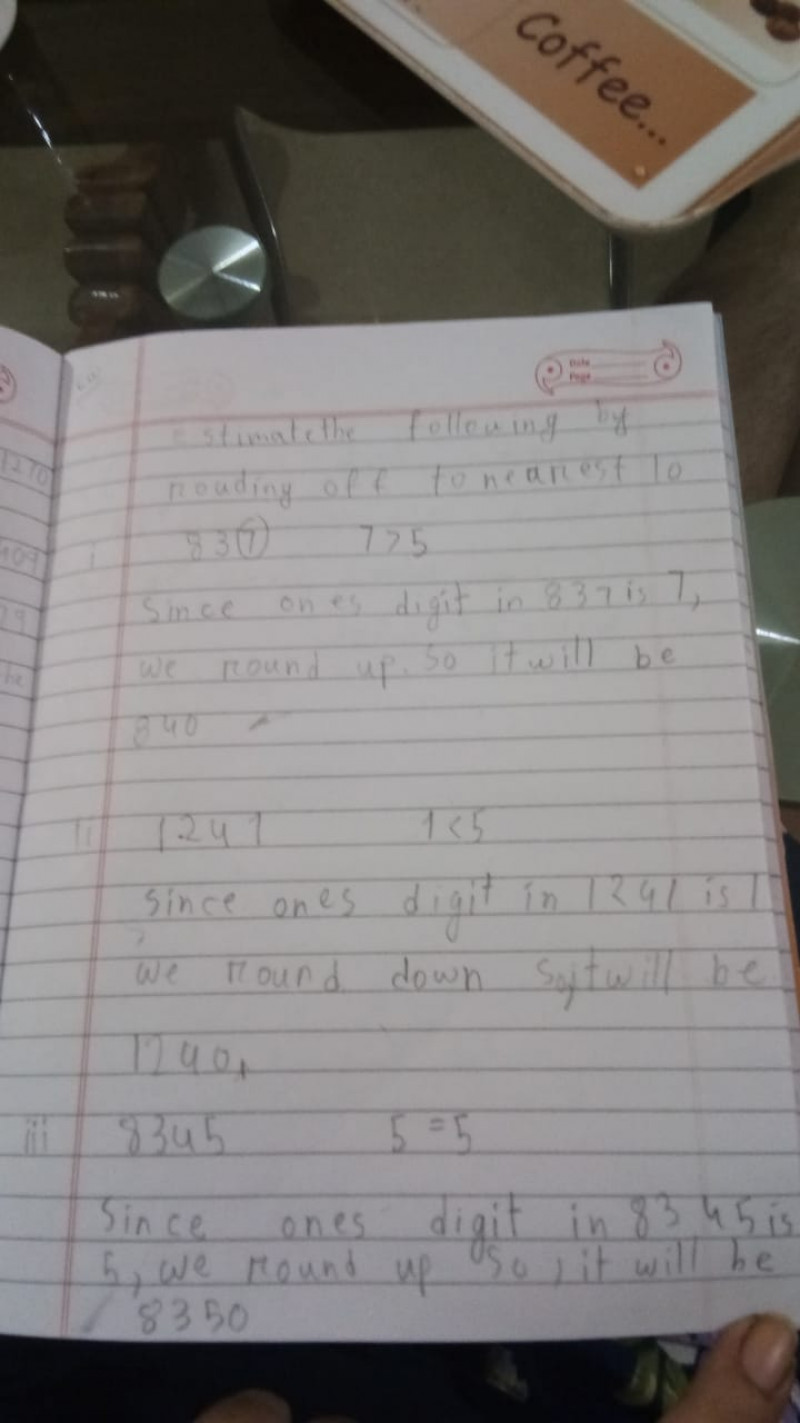 Coffee...
Date
Page
1270
estimatethe following by
nouding off to nearest 10
i 837 7>5
Since ones digit in 837 is 7,
we round up. So it will be
840
ii 1241 1<5
Since ones digit in 1241 is 1
,
we round down So,it will be
1240,
iii 8345 5=5
Since ones digit in 8345 is
5, we round up So, it will be
8350